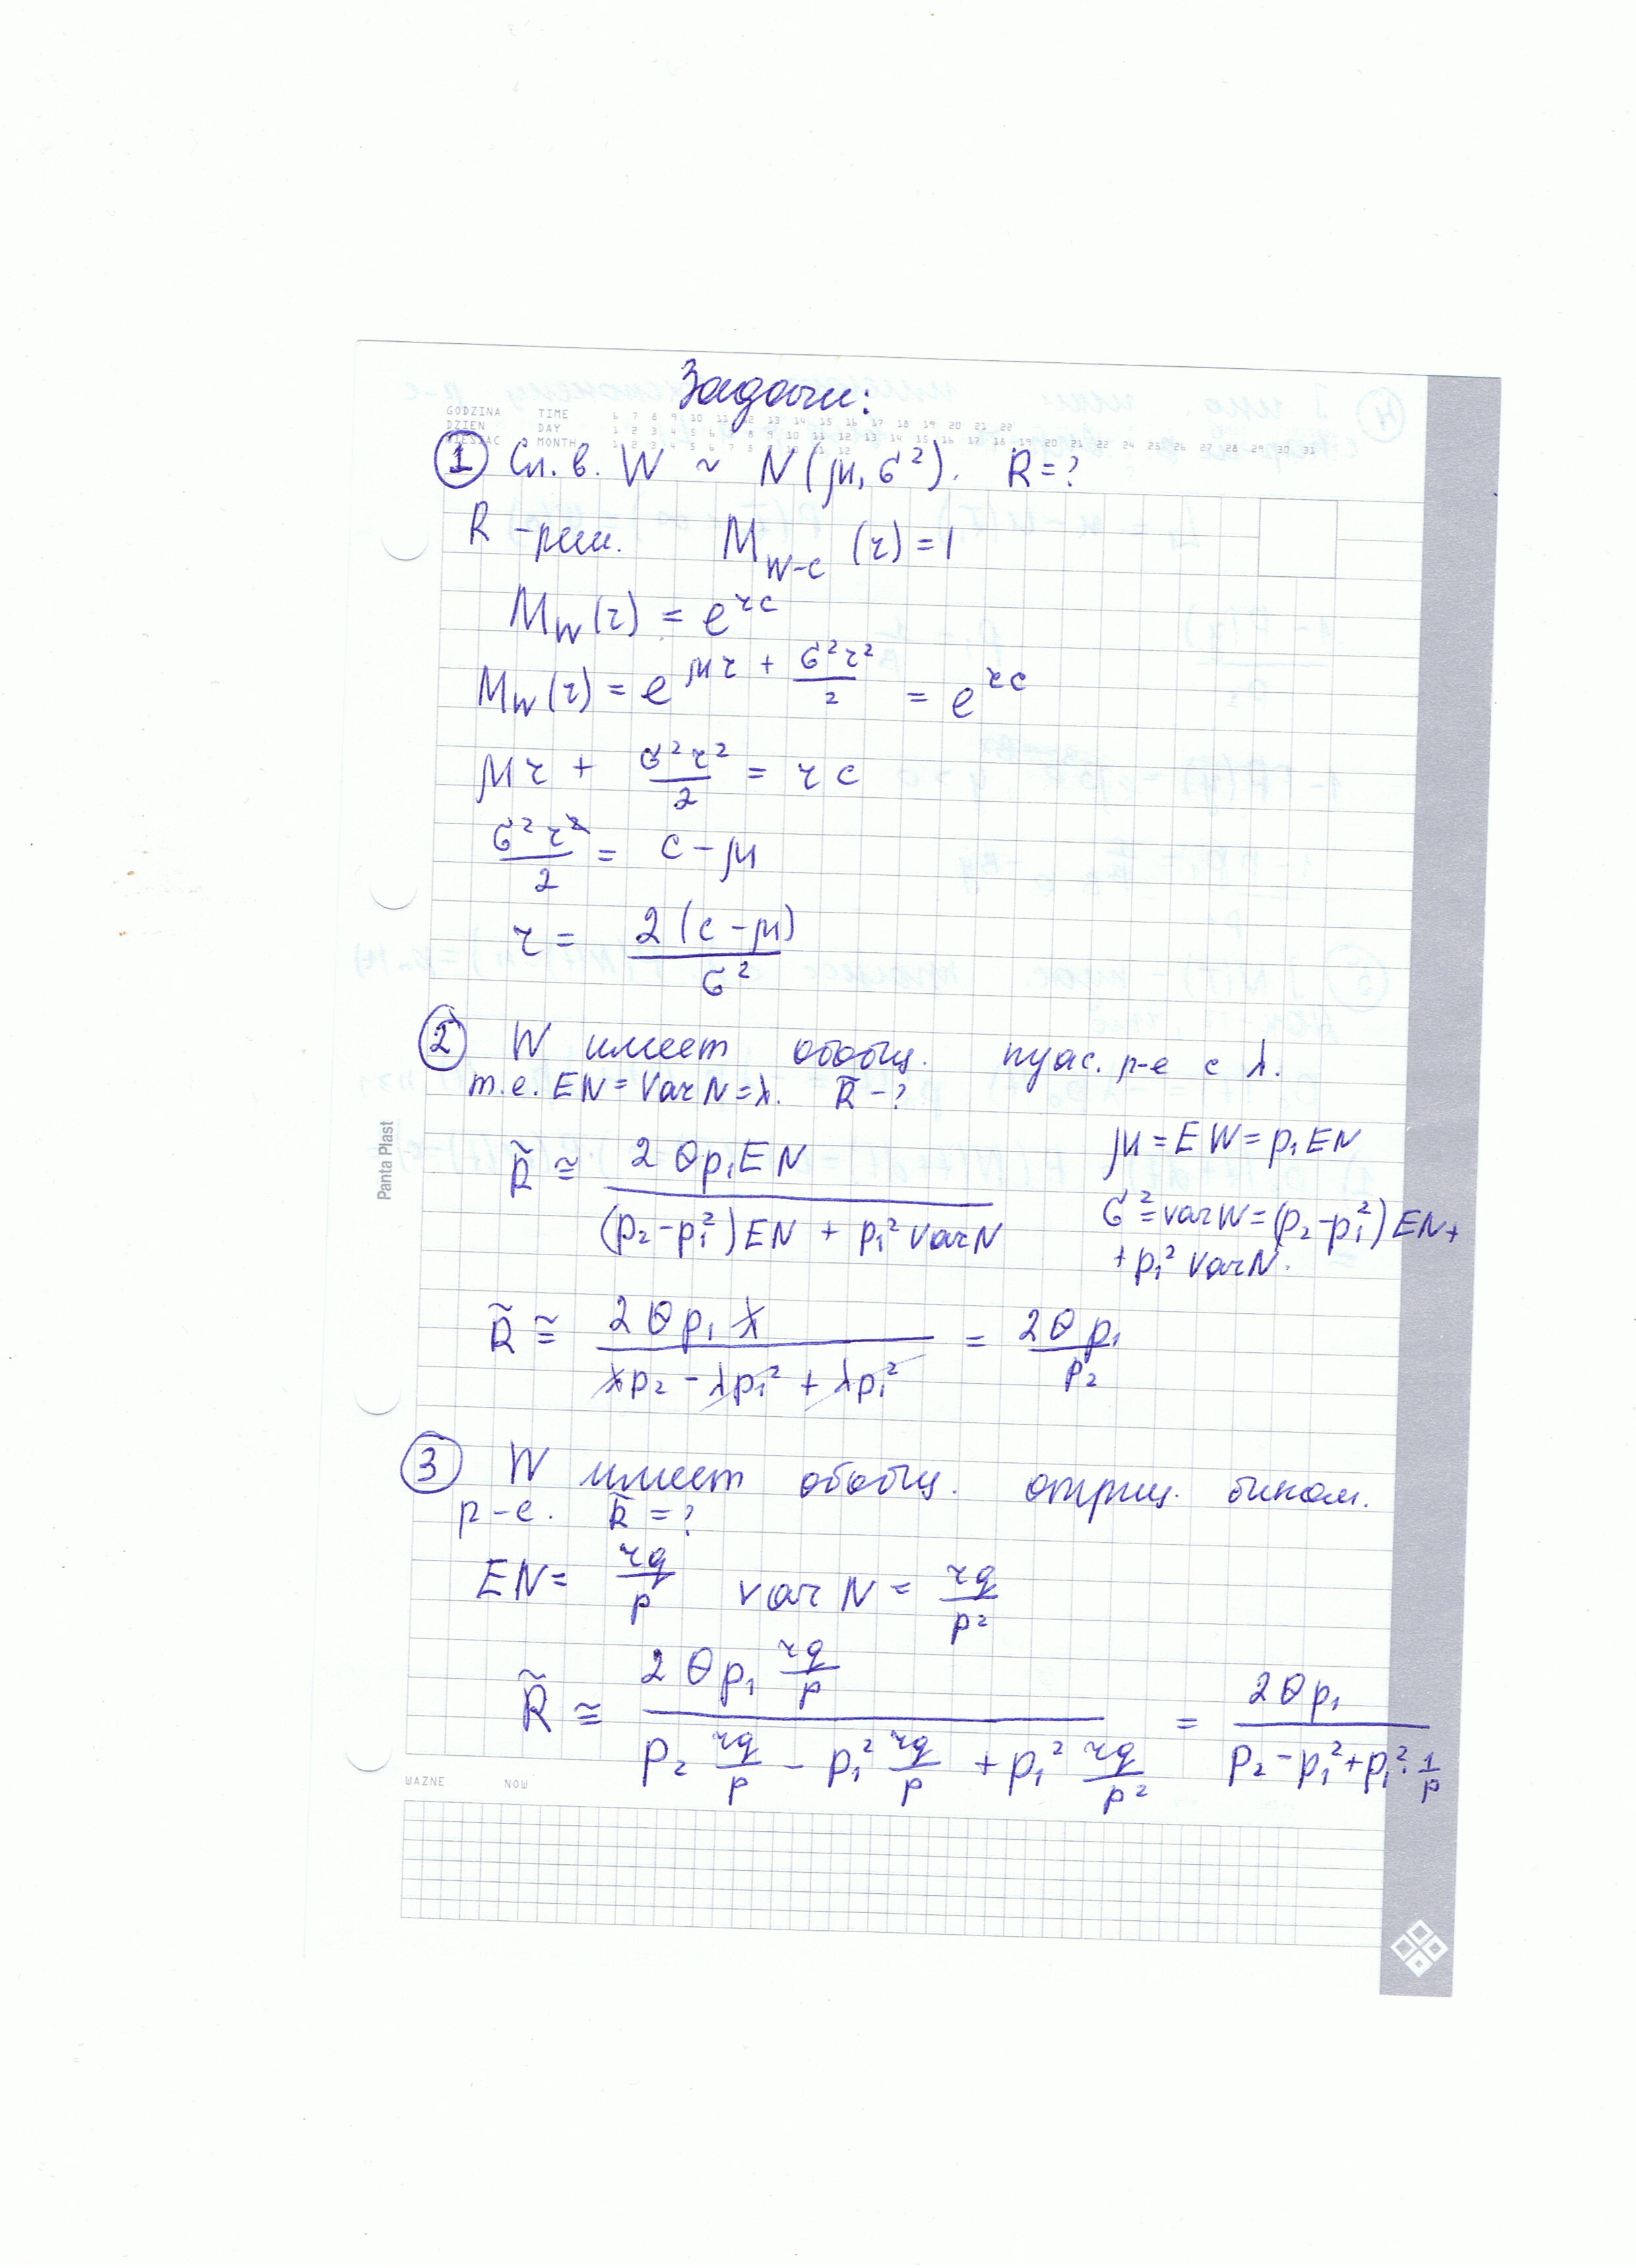 Задачи:
GODZINA TIME 6 7 8 9 10 11 12 13 14 15 16 17 18 19 20 21 22
DZIEN DAY 1 2 3 4 5 6 7 8 9 10 11 12 13 14 15 16 17 18 19 20 21 22 23 24 25 26 27 28 29 30 31
MIESIAC MONTH 1 2 3 4 5 6 7 8 9 10 11 12
① Сл. в. W ~ N(μ, σ²). R = ?
R - реш. M_{W-c}(r) = 1
M_W(r) = e^{rc}
M_W(r) = e^{μr + σ²r²/2} = e^{rc}
μr + σ²r²/2 = rc
σ²r²/2 = c - μ
r = 2(c - μ)/σ²
② W имеет обобщ. пуас. р-е с λ.
т.е. EN = Var N = λ. R̃ - ?
R̃ ≅ 2θp₁EN / ((p₂ - p₁²)EN + p₁² Var N)
μ = EW = p₁EN
σ² = Var W = (p₂ - p₁²)EN +
+ p₁² Var N.
R̃ ≅ 2θp₁λ / (λp₂ - λp₁² + λp₁²) = 2θp₁/p₂
③ W имеет обобщ. отриц. бином.
р-е. R̃ = ?
EN = rq/p Var N = rq/p²
R̃ ≅ 2θp₁ rq/p / (p₂ rq/p - p₁² rq/p + p₁² rq/p²) = 2θp₁ / (p₂ - p₁² + p₁² · 1/p)
WAZNE NOW
Panta Plast